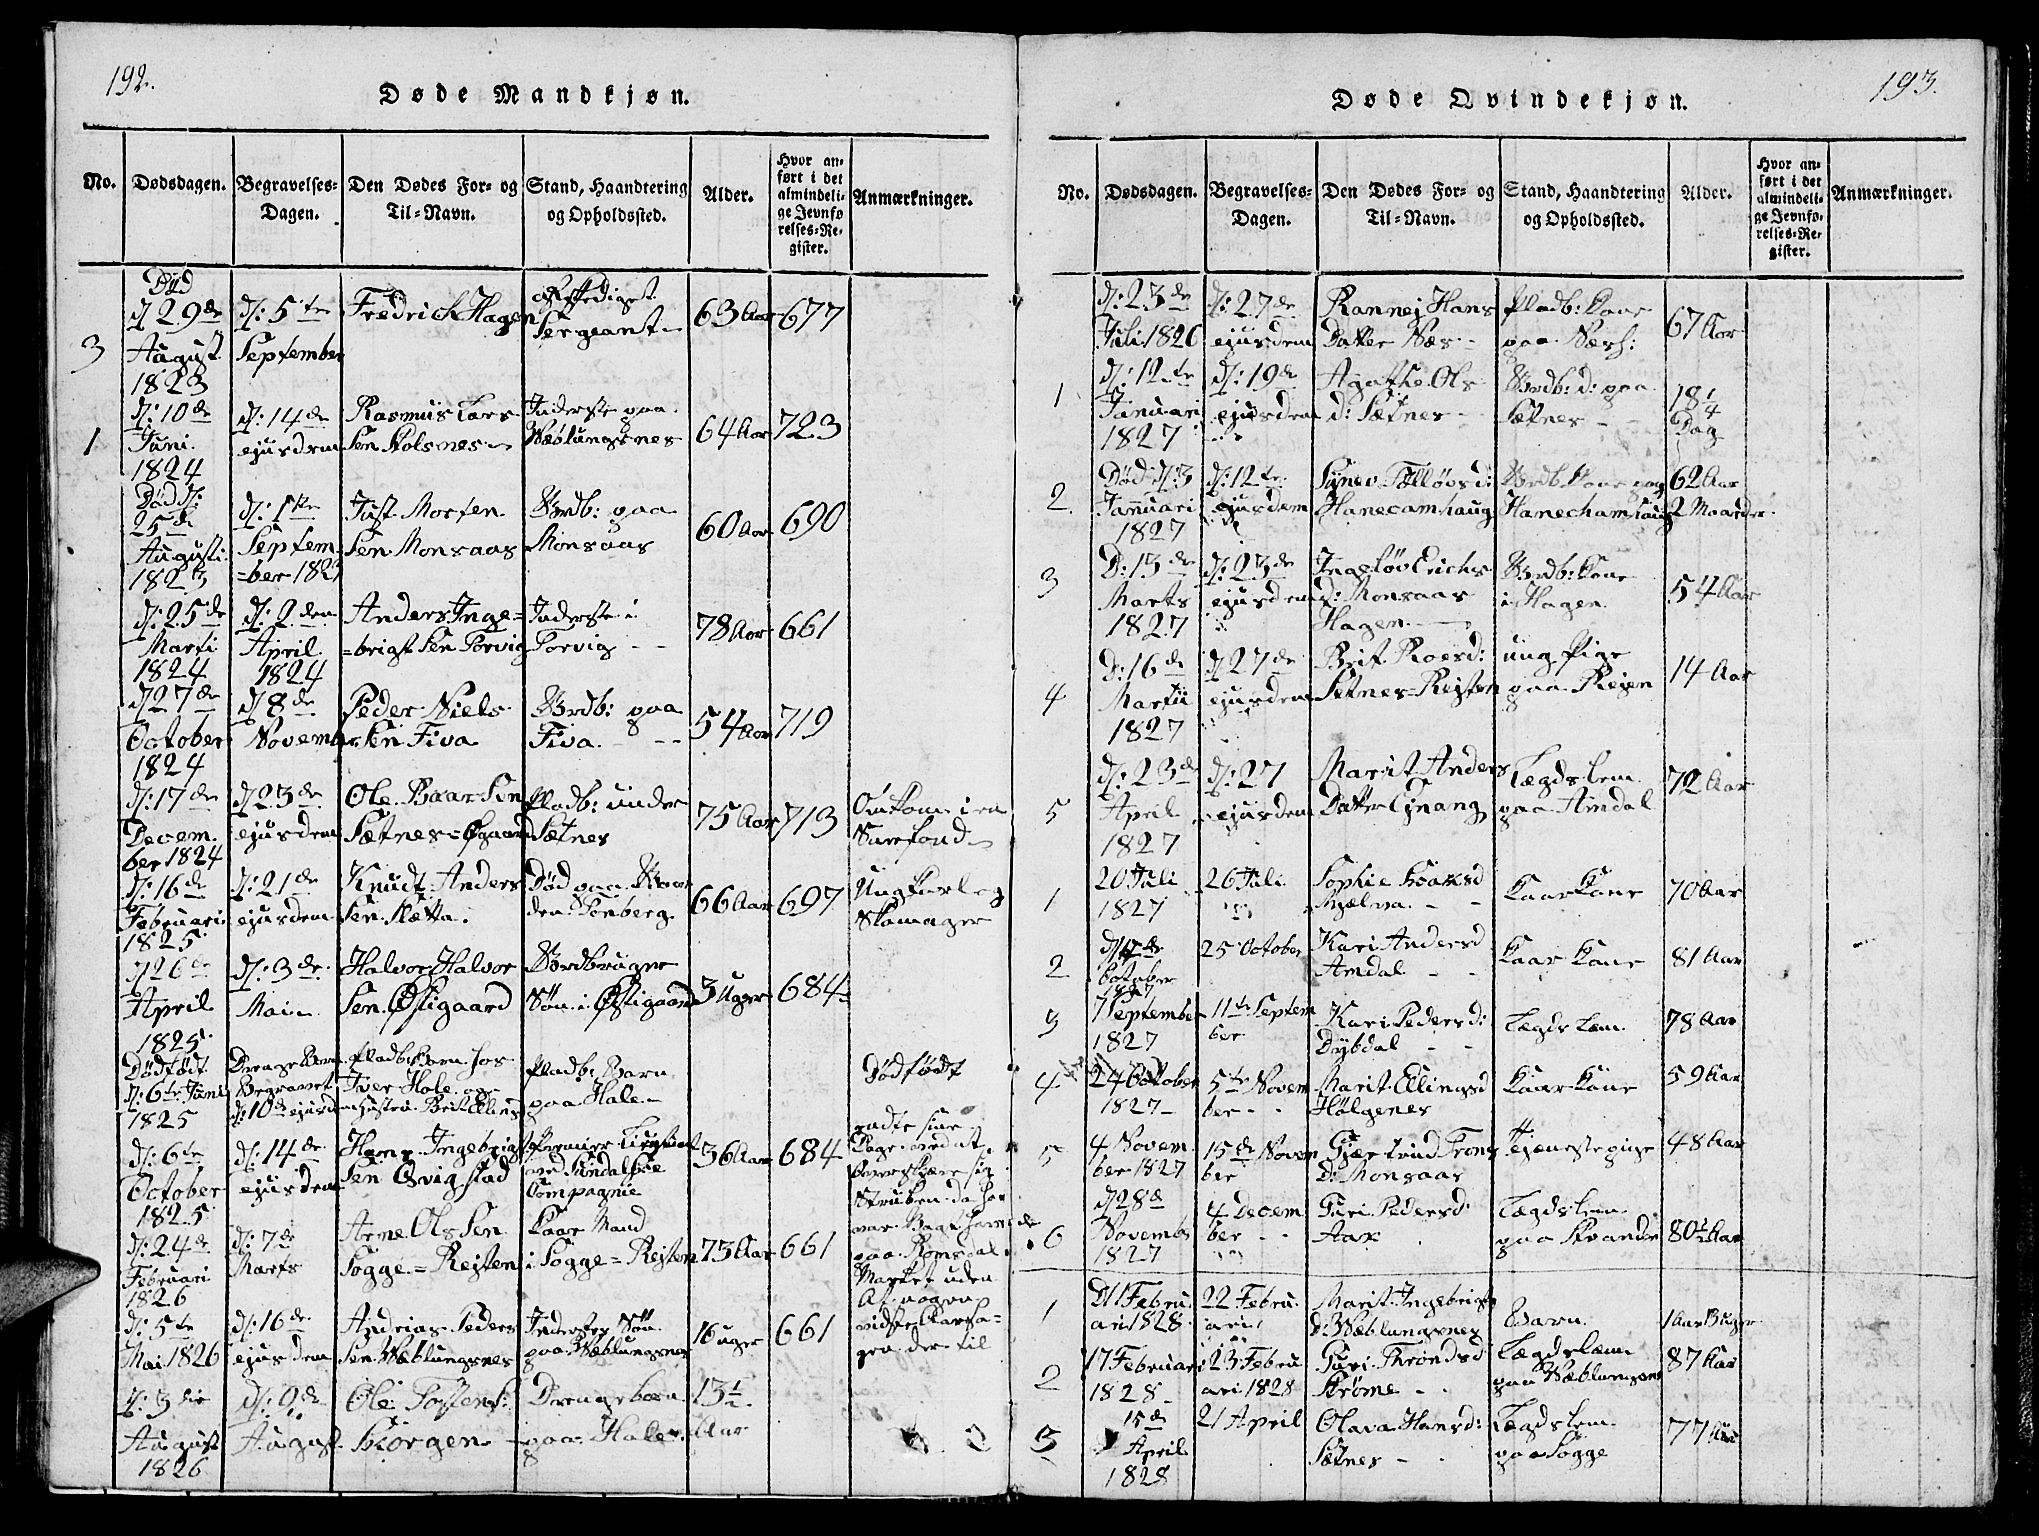 192.
Døde Mandkjøn.
No. Dødsdagen. Begravelses-Dagen. Den Dødes For- og Til-Navn. Stand, Haandtering og Opholdssted. Alder. Hvor anført i det almindelige Jevnførelses-Register. Anmærkninger.
Død
3 d 29de August 1823 d: 5te September Fredrich Hagen afskediget Sergeant 63 Aar 677
1 d: 10de Juni 1824 d: 14de ejusdem Rasmus Lars Sen Holsnes Inderste paa Wæblungsnes 64 Aar 723
Død d: 25de Augusti 1823 d: 1ste September 1823 Just Morten Sen Monsaas Brdb: paa Monsaas 60 Aar 690
d: 25de Marti 1824 d: 2den April 1824 Anders Inge=brigt Sen Torvig Inderste i Torvig 78 Aar 661
d 27de October 1824 d 8de November Peder Niels Sen Fiva Brdb: paa Fiva 54 Aar 719
d: 17de December 1824 d 23de ejusdem Ole Baar Sen Sætnes=Øgaard Pladb: under Sætnes 75 Aar 713 Omkom i en
d: 16de Februari 1825 d: 21de ejusdem Knudt Anders Sen Slætta Død paa Tonberg 66 Aar 697 Ungkarl og Skomager
d 26de April 1825 d: 3de Mai Halvor Halvor Sen Østigaard Brdbruger Søn i Østigaard 3 Uger 684
Dødfødt d: 6te Juni 1825 Drenge Barn Begravet d: 10de ejusdem Pladb: Barn hos Iver Hole og Hustru Brit Pladb: Barn paa Hole Dødfødt
d: 6te October 1825 d: 14de ejusdem Hans Ingebrigt Sen Qvigstad Premier Lieutnant ved Sundalske Compagnie 36 Aar 684 endte sine Dage ved at overskjære sin Struben da han var paa Romsdals Marked uden
d: 24de Februari 1826 d: 7de Marts Arne Ols Sen Sogge=Reisten Kaar Mand i Sogge=Reisten 73 Aar 661
d: 5te Mai 1826 d: 16de ejusdem Andreas Peders Sen Wæblungsnes Inderstes Søn paa Wæblungsnes 16 uger 661
d: 3die August 1826 d: 9de August Ole Tostens: Skorgen Drengebarn paa Hole 13 Aar
193.
Døde Qvindekjøn.
No. Dødsdagen. Begravelses-Dagen. Den Dødes For- og Til-Navn. Stand, Haandtering og Opholdssted. Alder. Hvor anført i det almindelige Jevnførelses-Register. Anmærkninger.
d: 23de Juli 1826 d: 27de ejusdem Rannej Hans Datter Næs Pladb: Kone paa Næsh: 67 Aar
1 d: 12te Januari 1827 d: 19de ejusdem Agathe Ols d: Sætnes Brdb: d: paa Sætnes 18 1/4 Dag
2. Død d: 3 Januari 1827 d: 12te ejusdem Synev Tølløvsd: Hanecamhaug Brdb Kone paa Hanechamhaug 62 Aar 2 Maaneder
3 D: 13de Marts 1827 d: 23de ejusdem Ingeløv Erichs d: Monsaas Hagen Brdb: Kone i Hagen 54 Aar
4 D: 16de Martii 1827 d 27de ejusdem Brit Roesd: Setnes=Reisten ung Pige paa Reien 14 Aar
5 d: 23de April 1827 d: 27 ejusdem Marit Anders Datter Lægdslem paa Amdal 72 Aar
1 20 Juli 1827 26 Juli Sophie Kaarkone 70 Aar
2 d 17de October 1827 25 October Kari Andersd Amdal Kaar Kone 81 Aar
3 7 September 1827 11te September Kari Pedersd: Dybdal Lægdslem 78 Aar
4 24 October 1827 5te November Marit Ellingsd Hølgenes Kaar Kone 59 Aar
5 4 November 1827 15de November Gjertrud Trons d: Monsaas Tjenestepige 48 Aar
6 d 28de November 1827 4 December Guri Pedersd Aak Lægdslem paa Kvande 80 1/2 Aar
1 D 11 Februari 1828 22 Februari Marit Ingebrigts d: Wæblungsnes Barn 1 Aar 13 Uger
2 17 Februari 1828 23 Februari 1828 Guri Throndsd Strøme Lægdslem paa Wæblungsnes 87 Aar
3 15de April 1828 21 April Olava Hansd: Sætnes Lægdslem paa Sogge 77 Aar